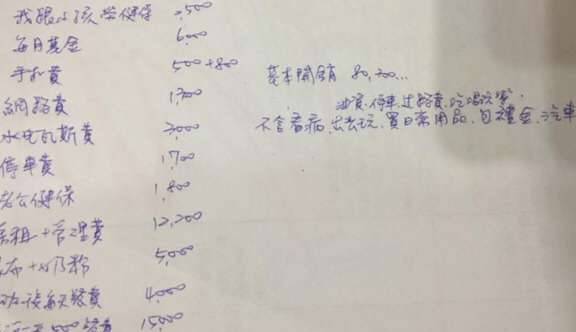 我跟小孩勞健保 2,500
每月基金 6,000
手机費 500+800
網路費 1,300
水电瓦斯費 3,000
停車費 1,700
老公健保 1,800
房租+管理費 12,200
尿布+奶粉 5,000
4,000
500 15,000
基本開銷 80,200...
油資.停車.过路費.吃喝玩樂.
不含看病.出去玩.買日常用品.包禮金.汽車